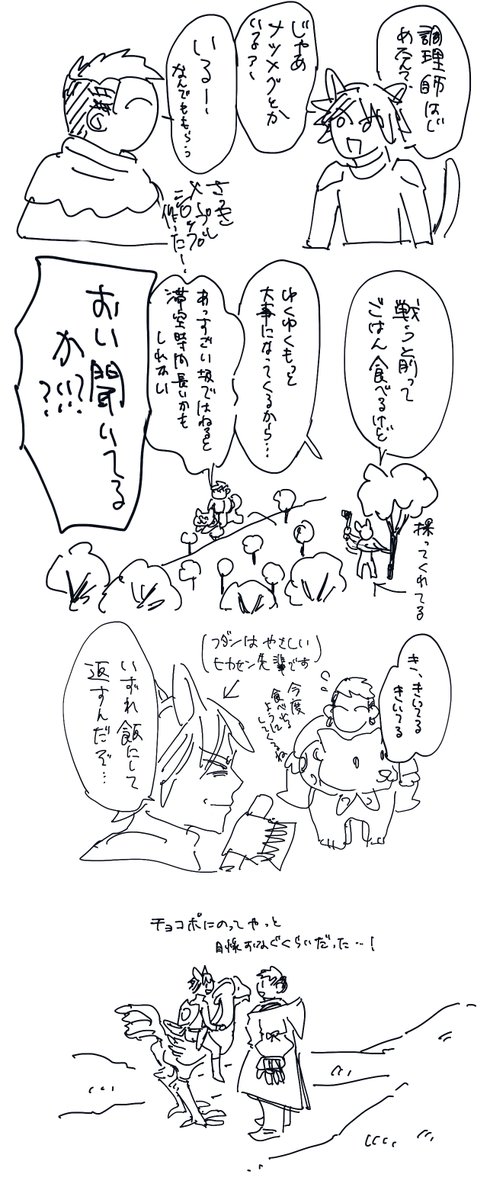 調理師はじ
めたんで、
じゃあ
ナツメグとか
いるぅ?
いるー、
なんでももらっ
さっき
メープル
シロップ
作ったー
戦う前って
ごはん食べるけど
ゆくゆくもっと
大事になってくるから…
あっすごい坂ではねると
滞空時間長いかも
しれない
おい聞いてる
か?!!?
採ってくれてる
き、きいてる
きいてる
(フダンはやさしい
ヒカセン先輩です)
今度
食べれる
ようにしてくるね
いずれ飯にして
返すんだぞ…
チョコボにのってやっと
目線おなじぐらいだった…!